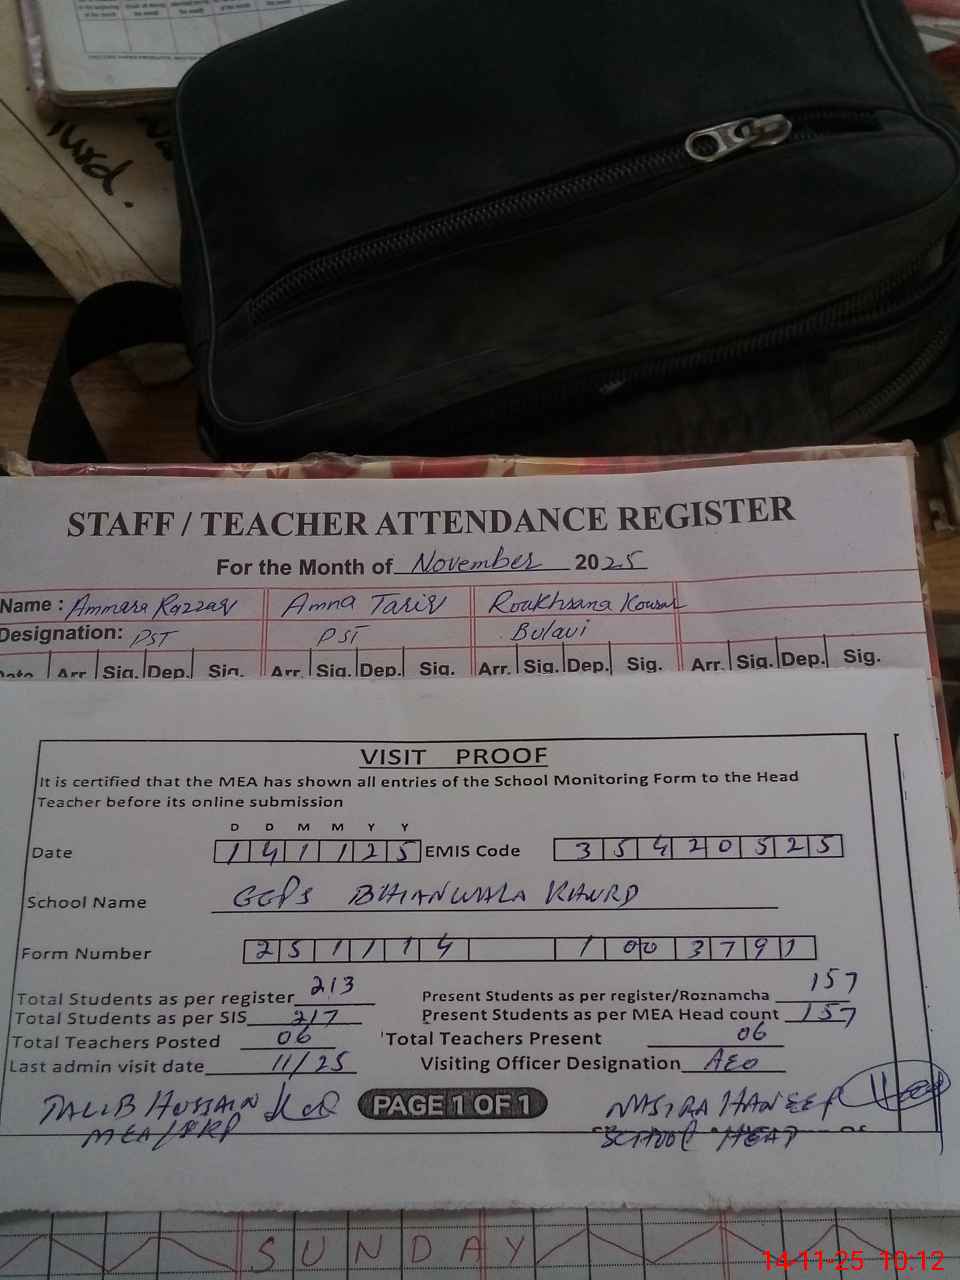 Kurd.
STAFF / TEACHER ATTENDANCE REGISTER
For the Month of November 2025
Name : Ammara Razzaq Amna Tariq Roukhsana Kousar
Designation: PST PST Bulavi
Date Arr. Sig. Dep. Sig. Arr. Sig. Dep. Sig. Arr. Sig. Dep. Sig. Arr. Sig. Dep. Sig.
VISIT PROOF
It is certified that the MEA has shown all entries of the School Monitoring Form to the Head
Teacher before its online submission
D D M M Y Y
Date 1 4 1 1 2 5 EMIS Code 3 5 4 2 0 5 2 5
School Name GGPS BHIANWALA KHURD
Form Number 2 5 1 1 1 4 1 00 3 7 9 1
Total Students as per register 213 Present Students as per register/Roznamcha 157
Total Students as per SIS 217 Present Students as per MEA Head count 157
Total Teachers Posted 06 Total Teachers Present 06
Last admin visit date 11/25 Visiting Officer Designation AEO
TALIB HUSSAIN PAGE 1 OF 1 NASIRA HANEEF
MEA/ SCHOOL HEAD
SUNDAY
14-11-25 10:12